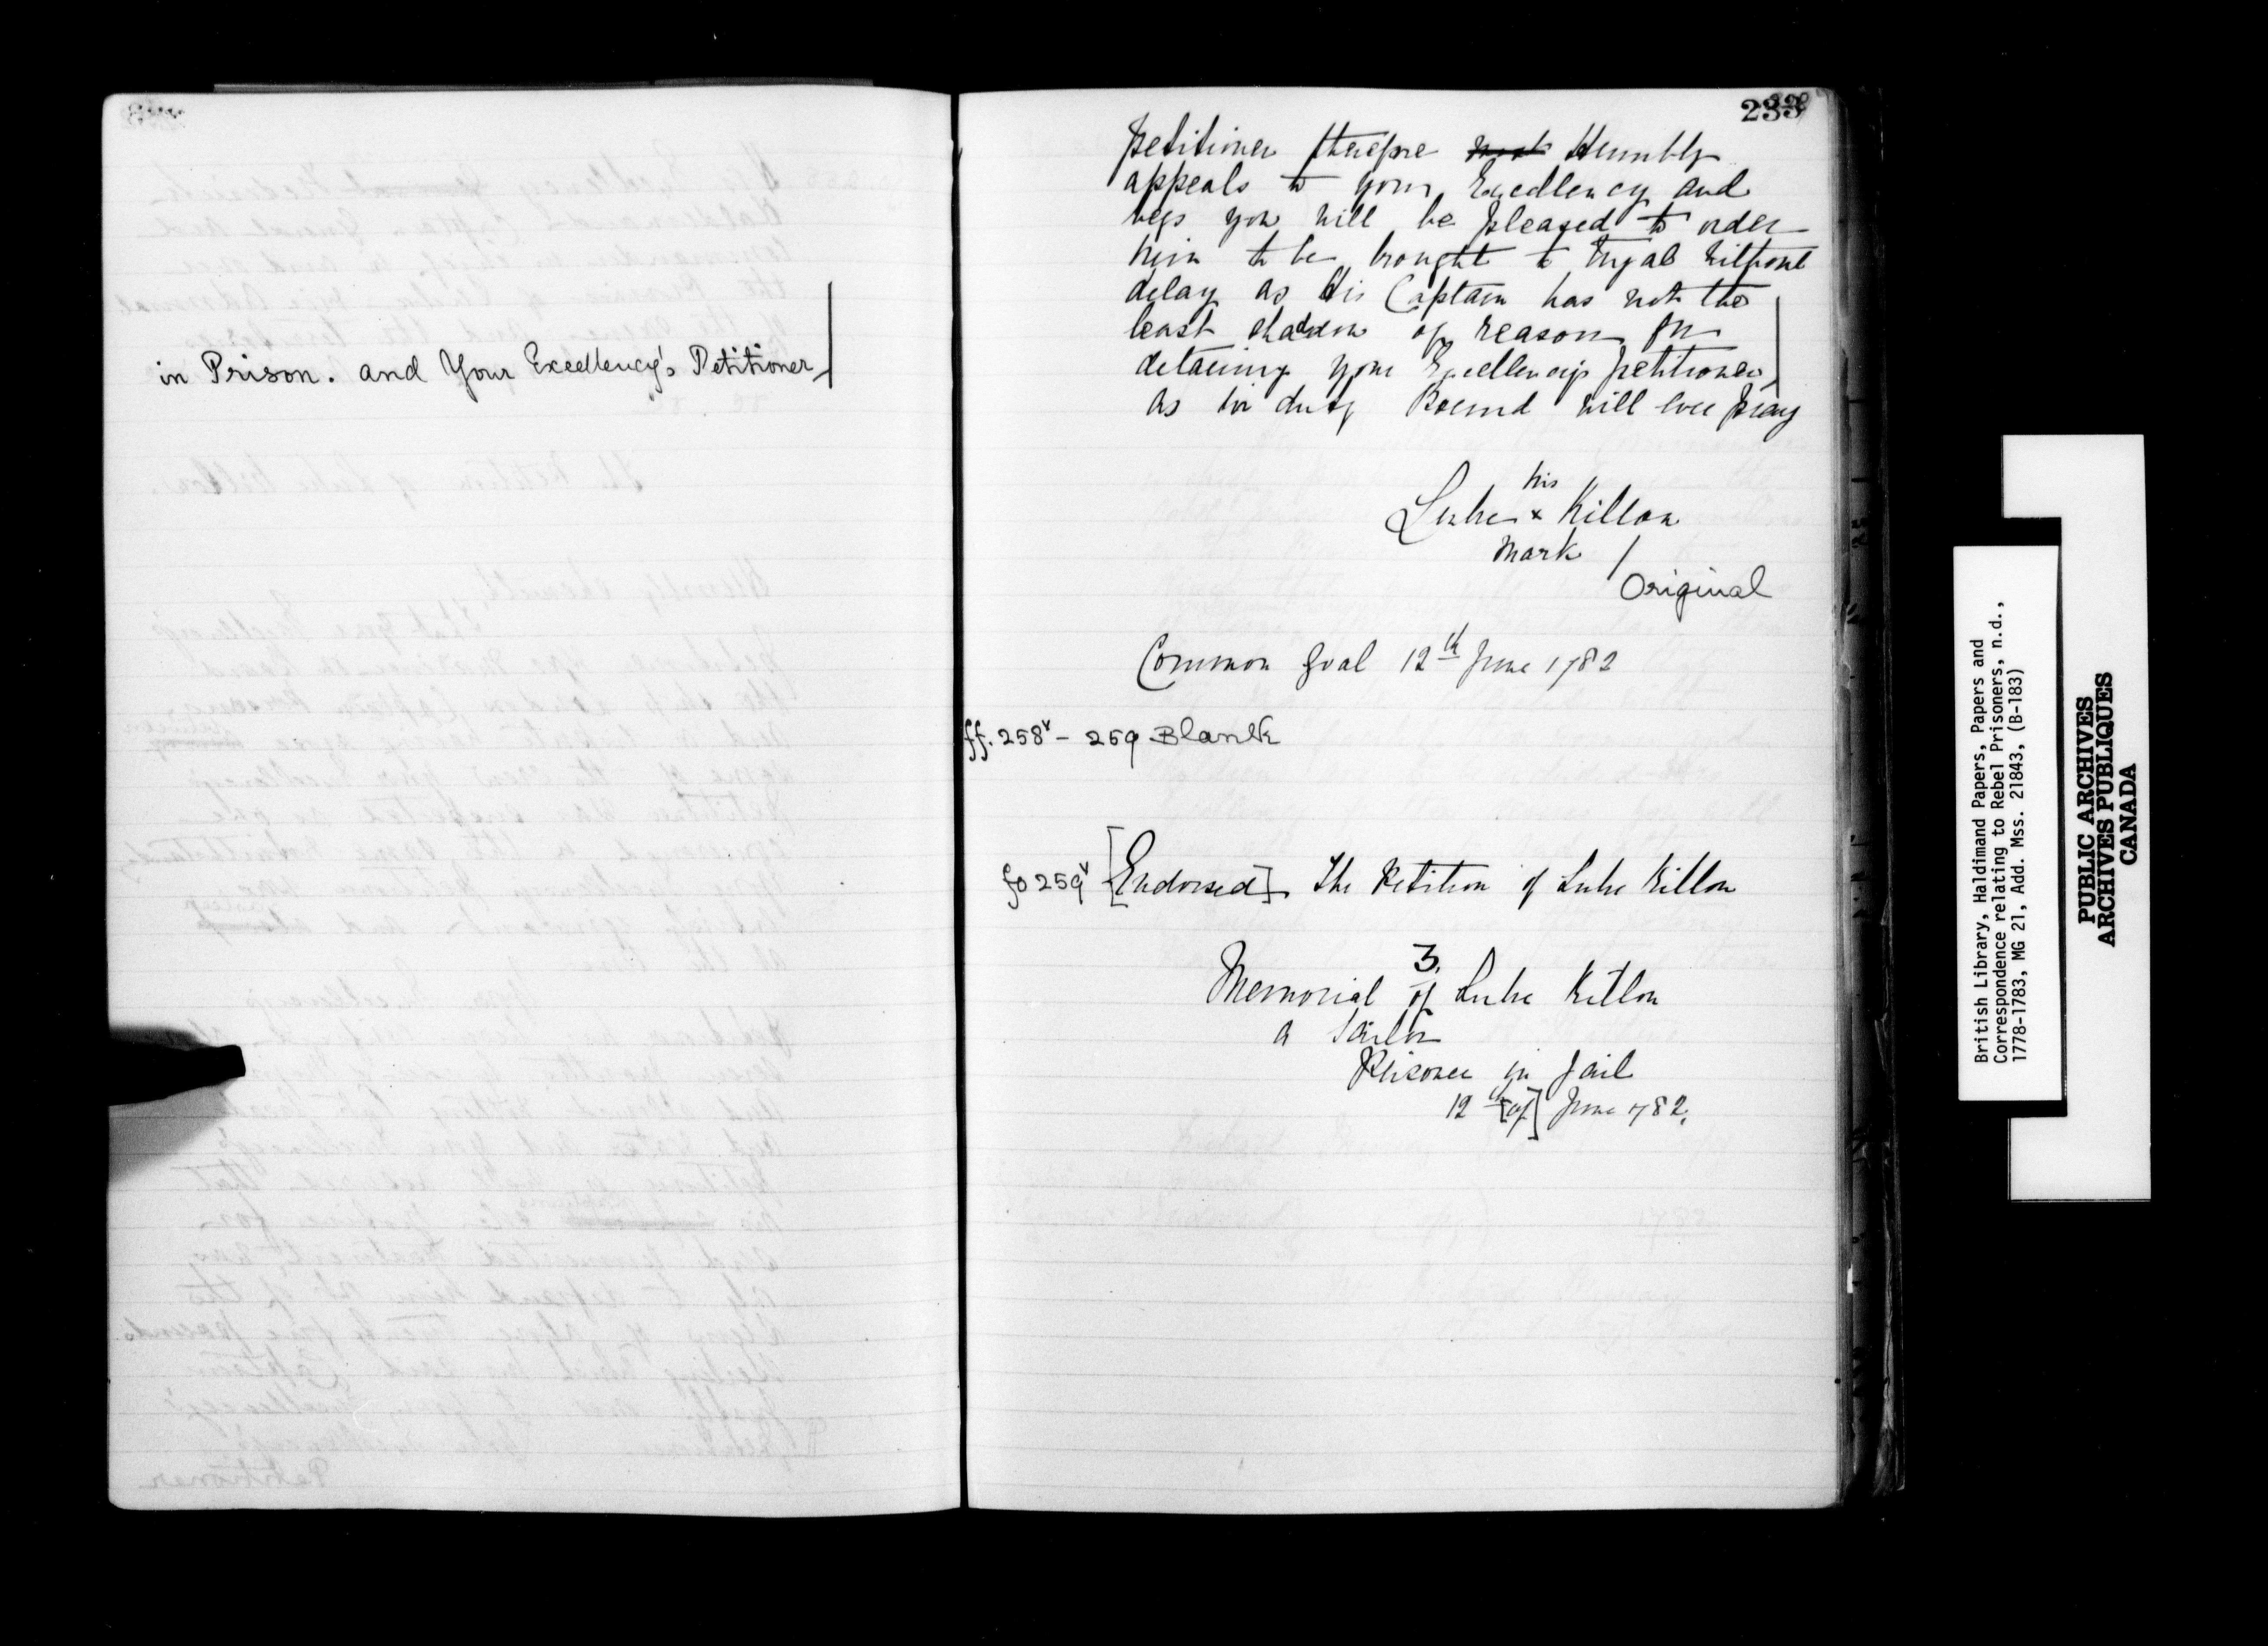 in Prison. and Your Excellency's Petitioner
233
petitioner therefore most Humbly
appeals to your Excellency and
begs you will be pleased to order
him to be brought to tryal without
delay as His Captain has not the
least shaddow of reason for
detaining your Excellencys petitioner
as in duty Bound will ever pray
his
Luke x Killon
mark
Original
Common Goal 12th June 1782
ff. 258v - 259 Blank
fo 259v [Endorsed]. The Petition of Luke Killon
3.
Memorial of Luke Killon
a Sailor
Prisoner in Jail
12th [of] June 1782.
British Library, Haldimand Papers, Papers and
Correspondence relating to Rebel Prisoners, n.d.,
1778-1783, MG 21, Add. Mss. 21843, (B-183)
PUBLIC ARCHIVES
ARCHIVES PUBLIQUES
CANADA